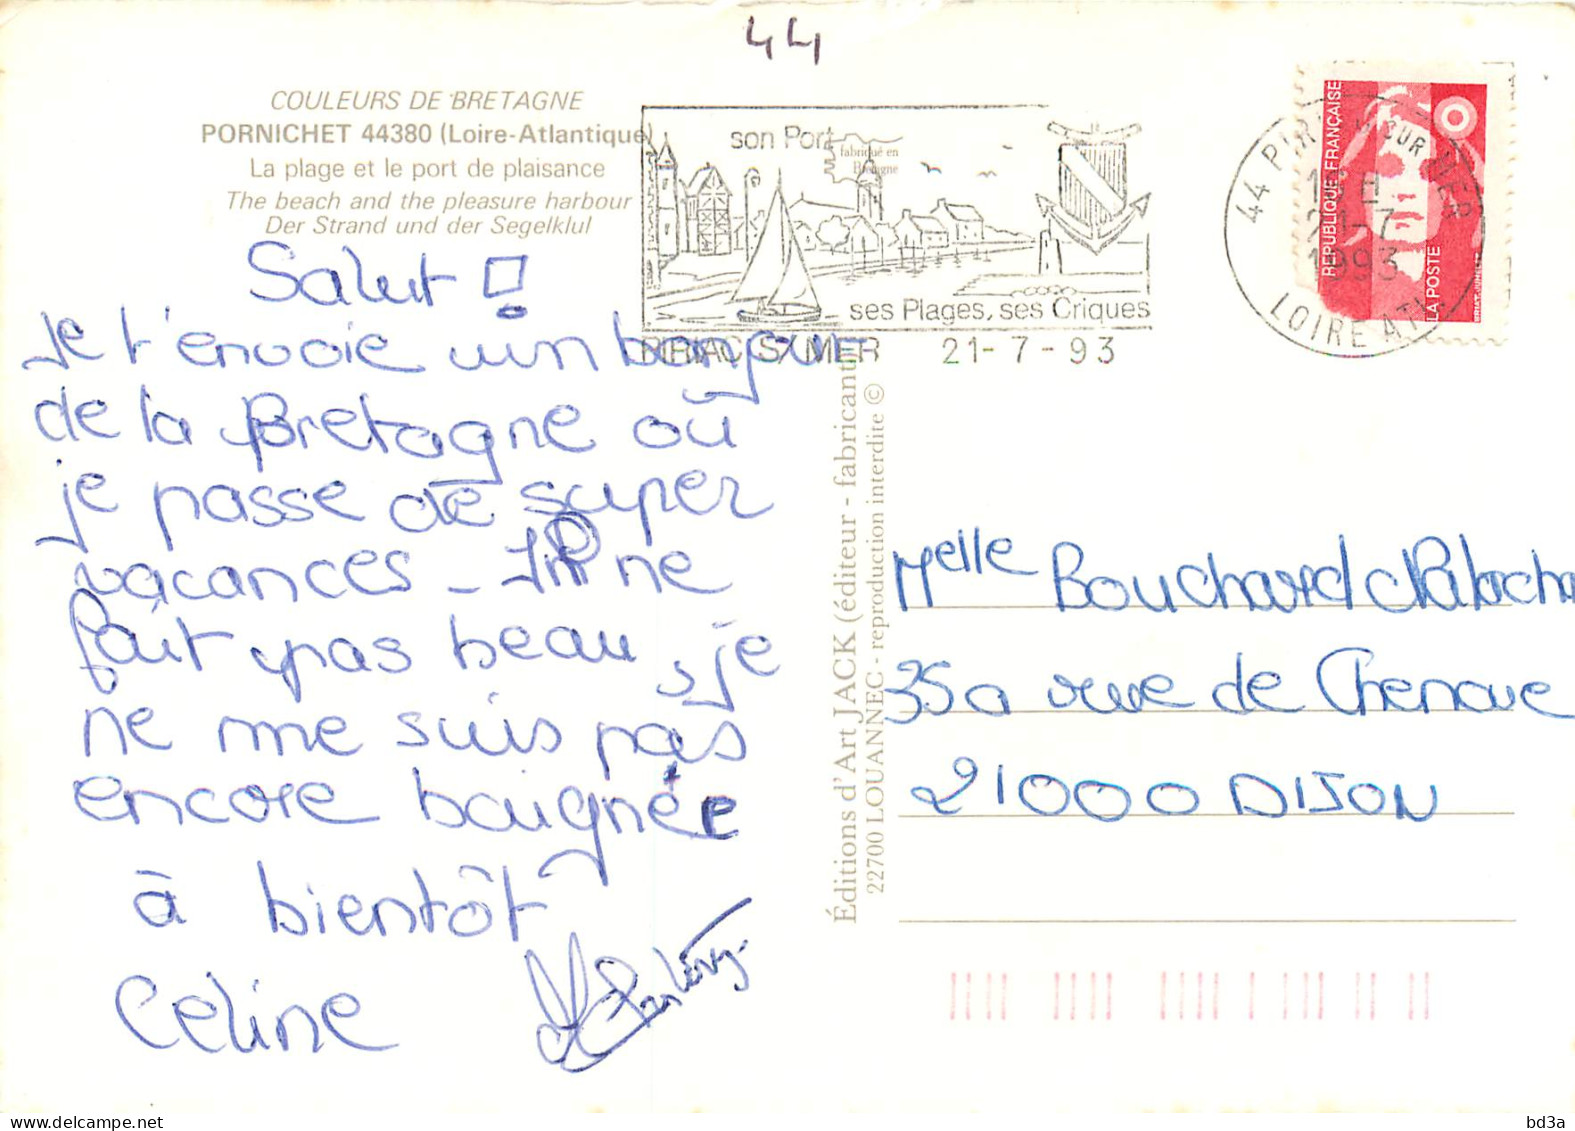 44
COULEURS DE BRETAGNE
PORNICHET 44380 (Loire-Atlantique)
La plage et le port de plaisance
The beach and the pleasure harbour
Der Strand und der Segelklul
son Port
fabriqué en
Bretagne
ses Plages, ses Criques
PIRIAC S/ MER 21-7-93
44 PIRIAC SUR MER
21-7
1993
LOIRE ATL.
REPUBLIQUE FRANÇAISE
LA POSTE
Salut !
Je t'envoie un bonjour
de la Bretagne où
je passe de super
vacances - Il ne
fait pas beau, je
ne me suis pas
encore baignée
à bientôt
Céline
Éditions d'Art JACK (éditeur - fabricant)
22700 LOUANNEC - reproduction interdite ©
Melle Bouchard
35a rue de Chenove
21000 DIJON
bd3a